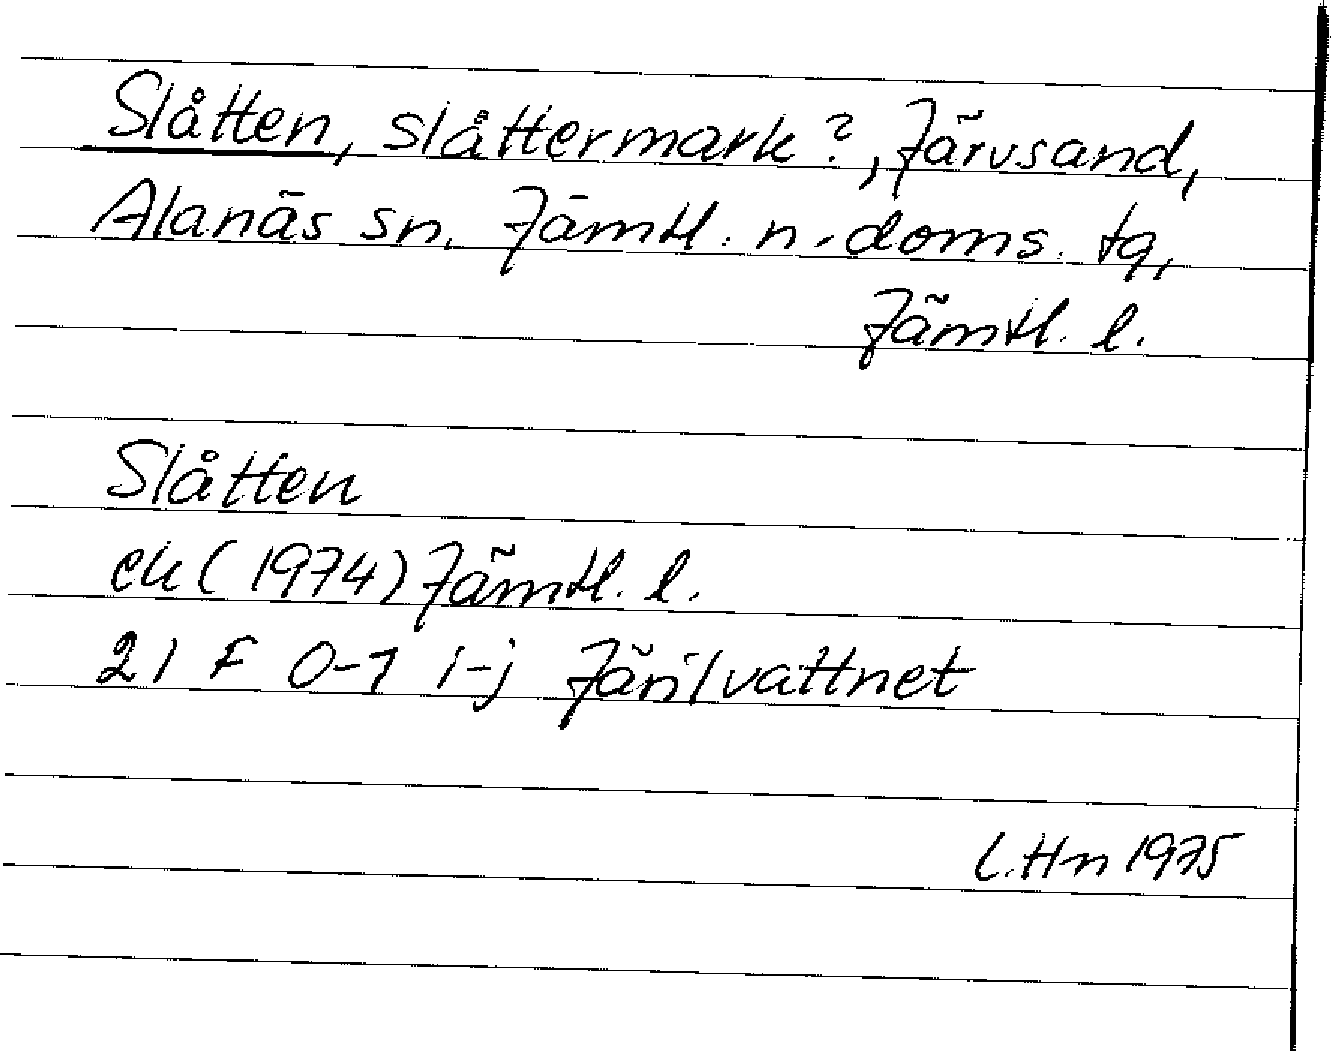 Slåtten, slåttermark?, Järvsand,
Alanäs sn, Jämtl. n. doms. tg,
Jämtl. l.
Slåtten
ek (1974) Jämtl. l.
21 F 0-1 i-j Järilvattnet
L.Hn 1975